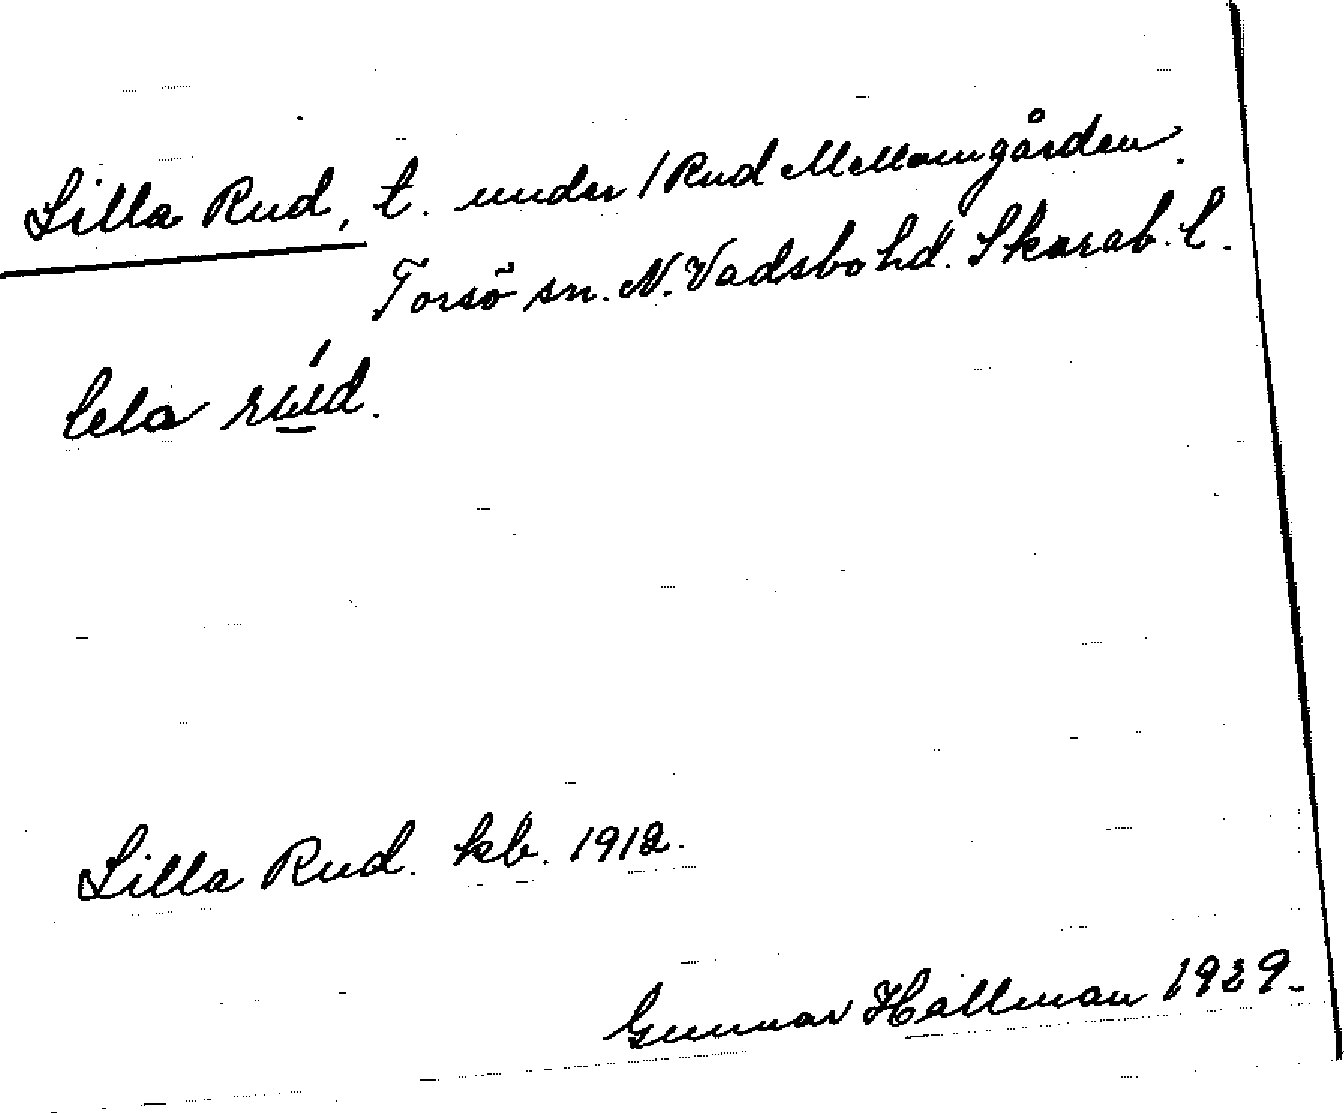 Lilla Rud, t. under 1 Rud Mellomgården.
Torsö sn. N. Vadsbo hd. Skarab. l.
lela rúd.
Lilla Rud. kb. 1912.
Gunnar Hallman 1929.